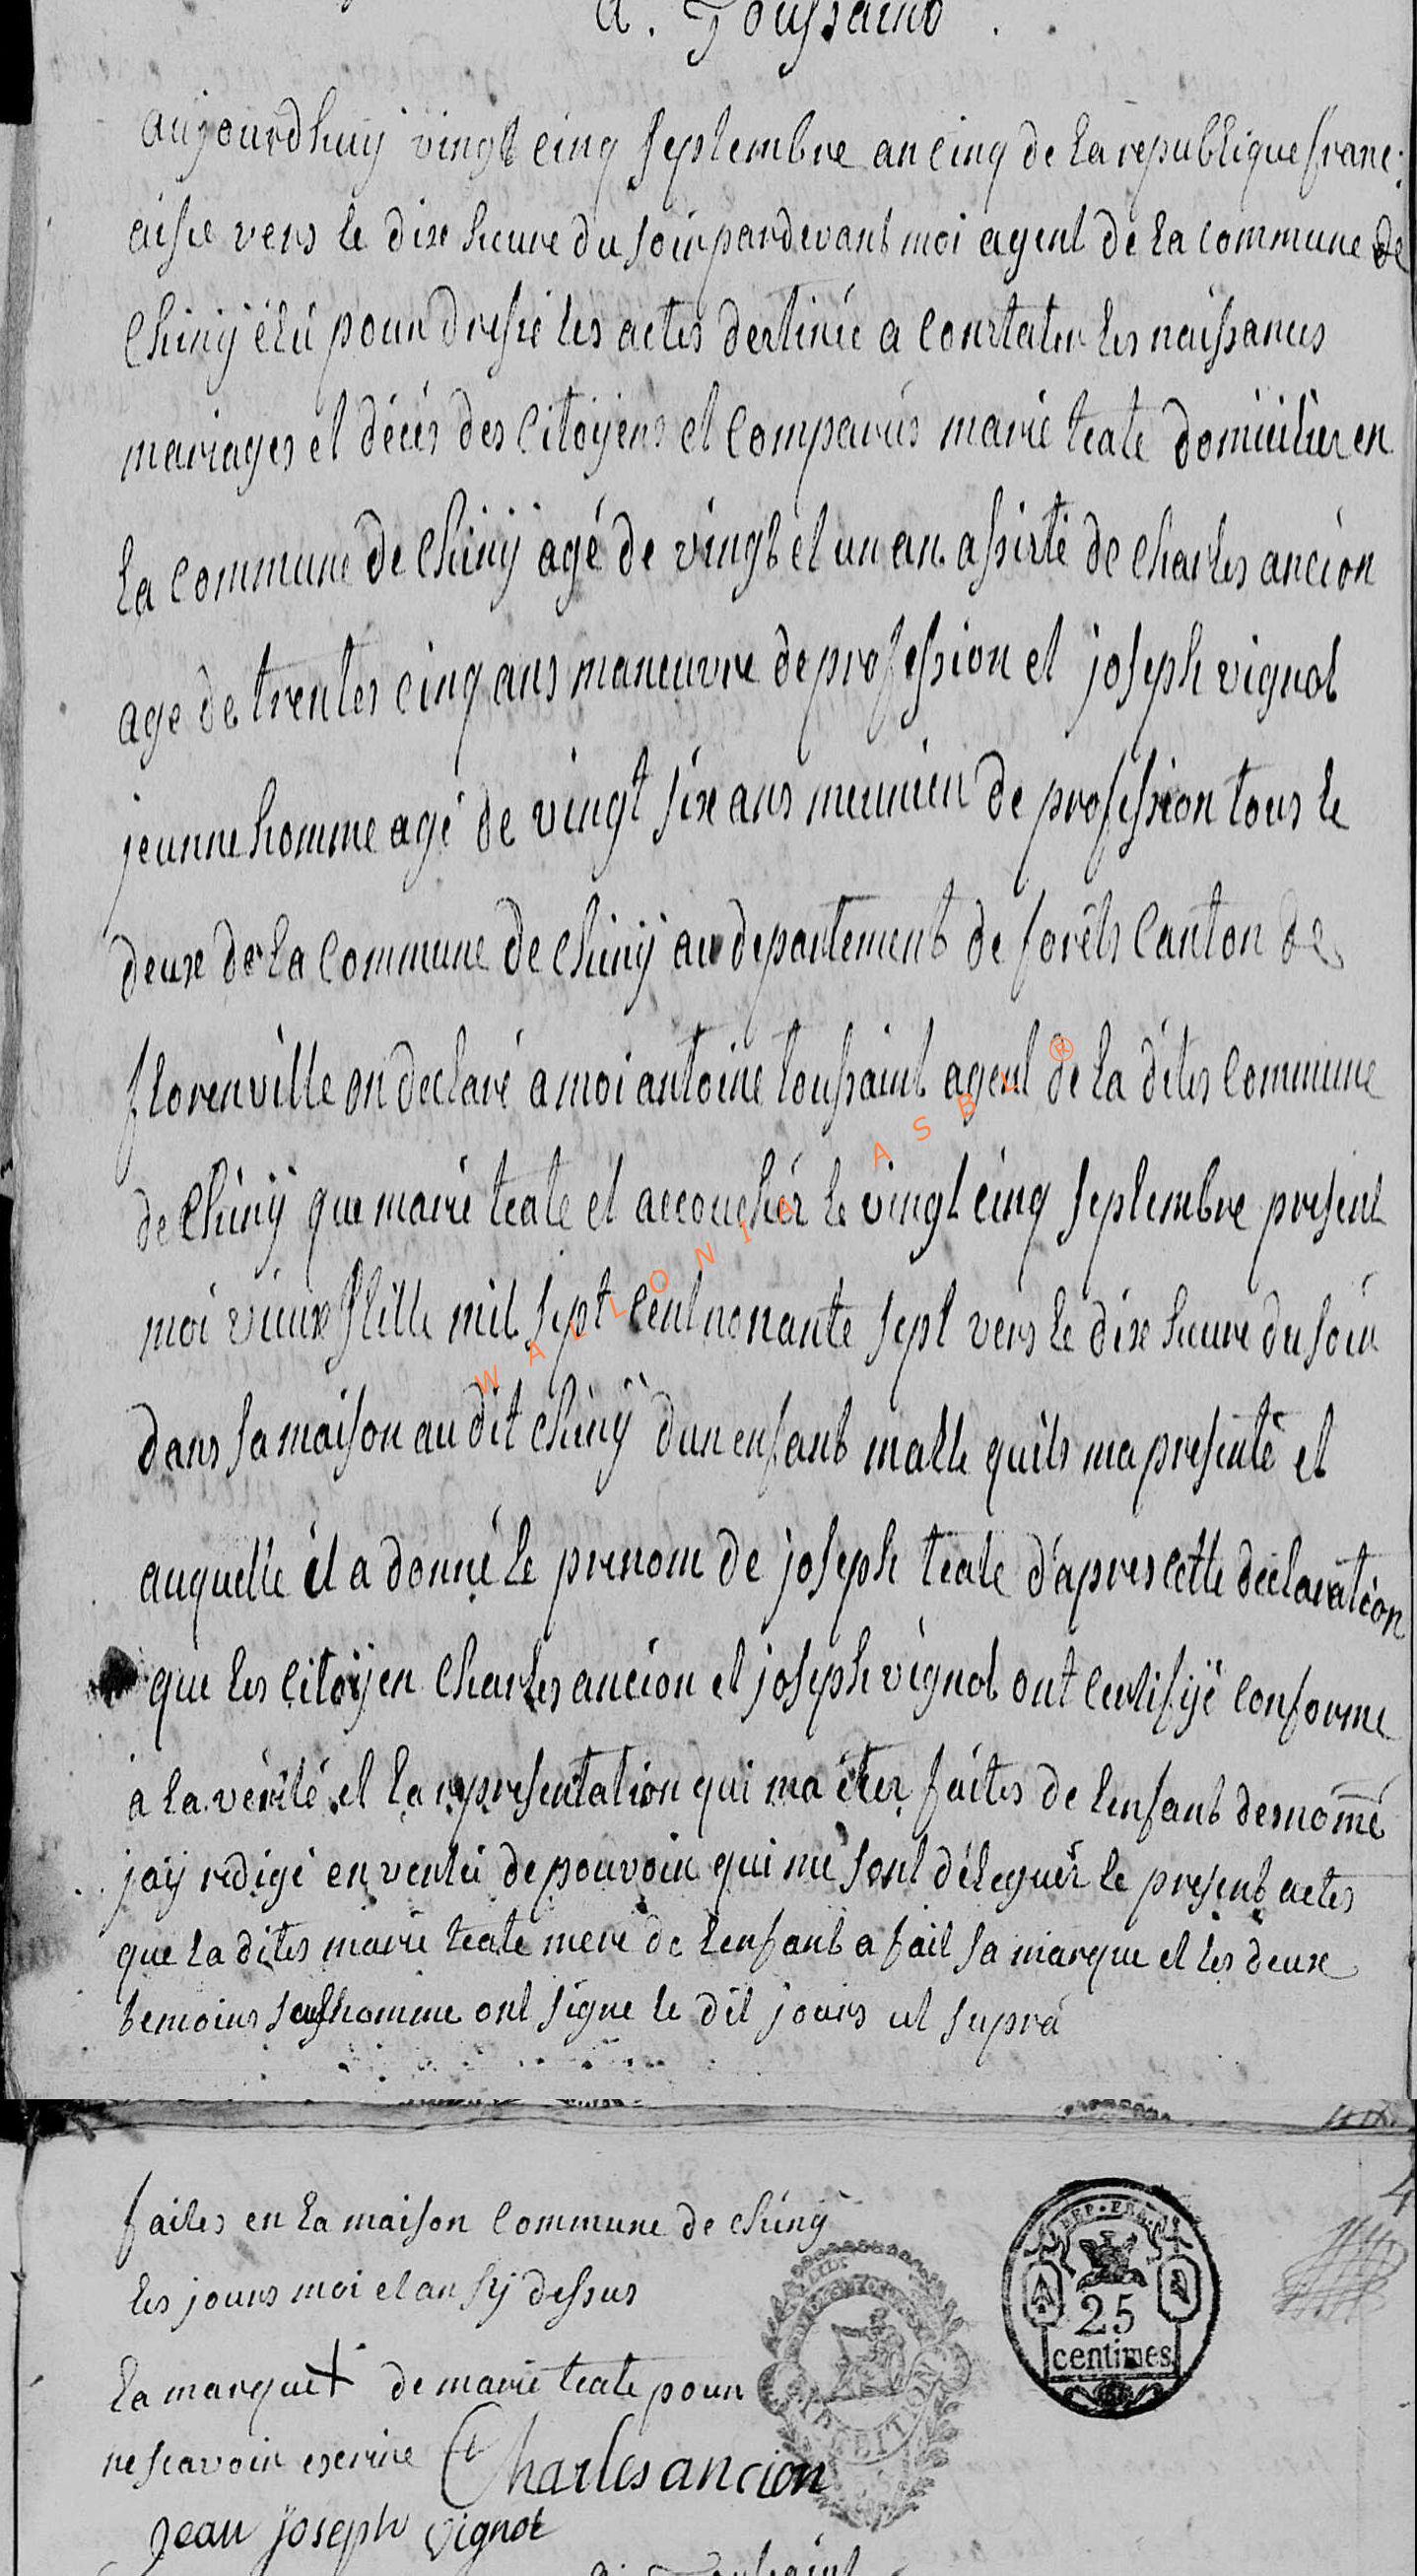 a. Toussaint
aujourdhuy vingt cinq septembre an cinq de la republique franc
aisse vers le dix heure du soir pardevant moi agent de la commune de
Chiny élú pour dressé les actes destinée a constater les naissances
mariages et décés des Citoyens et comparus marie teate domicilier en
la commune de Chiny agé de vingt et un an assisté de Charles ancion
age de trentes cinq ans maneuvre de profession et joseph vignot
jeunne homme agé de vingt six ans meunier de profession tous le
deux de la Commune de Chiny au departement de forêts Canton de
florenville on declaré a moi antoine toussaint agent de la dites Commune
de Chiny que marie teate et accouchér le vingt cinq septembre present
moi vieux stille mil sept cent nonante sept vers le dix heure du soir
dans sa maison au dit Chiny dun enfant malle quils ma presenté et
auquelle il a donné le prenom de joseph teate d'apres cette declaration
que les Citoyen Charles ancion et joseph vignot ont certifijé conforme
à la vérité et la representation qui ma éter faites de lenfant denomé
jaÿ redigé en vertu de pouvoir qui me sont déleguér le present actes
que la dites marie teate mere de lenfant a fait sa marque et les deux
temoins homme ont signe le dit jours ut supra
WALLONIA ASBL ®
faites en la maison Commune de Chiny
les jours moi et an sÿ dessus
REP. FRA.
25
centimes
la marque + de marie teate pour
ne scavoir escrire Charles ancion
Jean joseph vignot
a. Toussaint